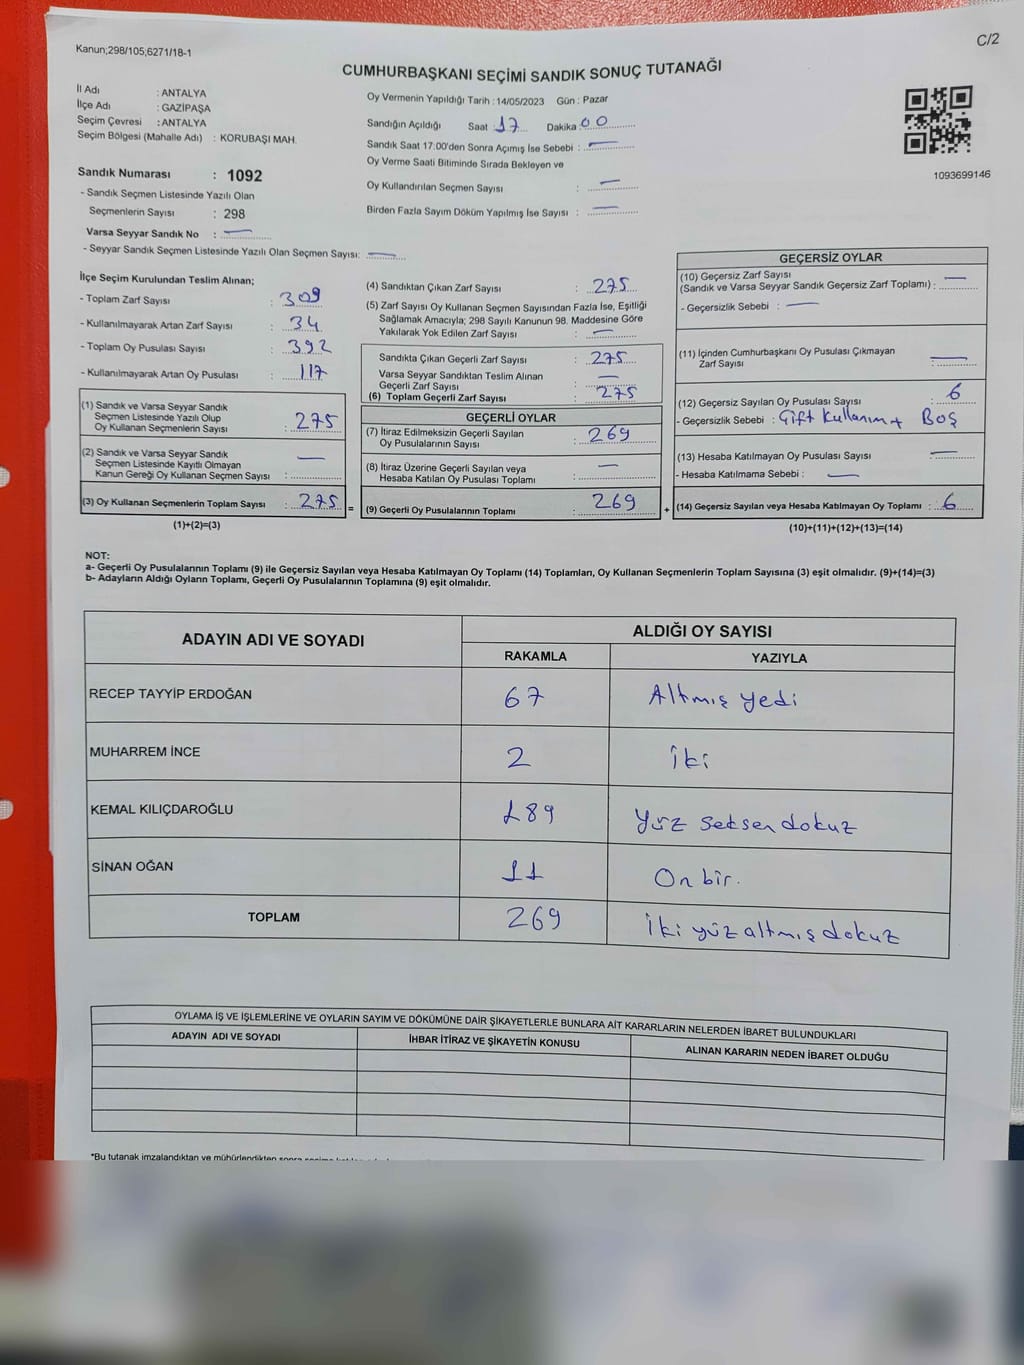 Kanun;298/105;6271/18-1
C/2
CUMHURBAŞKANI SEÇİMİ SANDIK SONUÇ TUTANAĞI
İl Adı : ANTALYA
İlçe Adı : GAZİPAŞA
Seçim Çevresi : ANTALYA
Seçim Bölgesi (Mahalle Adı) : KORUBAŞI MAH.
Sandık Numarası : 1092
- Sandık Seçmen Listesinde Yazılı Olan
Seçmenlerin Sayısı : 298
Varsa Seyyar Sandık No : —
- Seyyar Sandık Seçmen Listesinde Yazılı Olan Seçmen Sayısı: —
Oy Vermenin Yapıldığı Tarih : 14/05/2023 Gün : Pazar
Sandığın Açıldığı Saat : 17 Dakika : 00
Sandık Saat 17:00'den Sonra Açımış İse Sebebi : —
Oy Verme Saati Bitiminde Sırada Bekleyen ve
Oy Kullandırılan Seçmen Sayısı : —
Birden Fazla Sayım Döküm Yapılmış İse Sayısı : —
1093699146
İlçe Seçim Kurulundan Teslim Alınan;
- Toplam Zarf Sayısı : 309
- Kullanılmayarak Artan Zarf Sayısı : 34
- Toplam Oy Pusulası Sayısı : 392
- Kullanılmayarak Artan Oy Pusulası : 117
(1) Sandık ve Varsa Seyyar Sandık
Seçmen Listesinde Yazılı Olup
Oy Kullanan Seçmenlerin Sayısı : 275
(2) Sandık ve Varsa Seyyar Sandık
Seçmen Listesinde Kayıtlı Olmayan
Kanun Gereği Oy Kullanan Seçmen Sayısı : —
(3) Oy Kullanan Seçmenlerin Toplam Sayısı : 275 =
(1)+(2)=(3)
(4) Sandıktan Çıkan Zarf Sayısı : 275
(5) Zarf Sayısı Oy Kullanan Seçmen Sayısından Fazla İse, Eşitliği
Sağlamak Amacıyla; 298 Sayılı Kanunun 98. Maddesine Göre
Yakılarak Yok Edilen Zarf Sayısı : —
Sandıkta Çıkan Geçerli Zarf Sayısı : 275
Varsa Seyyar Sandıktan Teslim Alınan
Geçerli Zarf Sayısı : —
(6) Toplam Geçerli Zarf Sayısı : 275
GEÇERLİ OYLAR
(7) İtiraz Edilmeksizin Geçerli Sayılan
Oy Pusulalarının Sayısı : 269
(8) İtiraz Üzerine Geçerli Sayılan veya
Hesaba Katılan Oy Pusulası Toplamı : —
(9) Geçerli Oy Pusulalarının Toplamı : 269 +
GEÇERSİZ OYLAR
(10) Geçersiz Zarf Sayısı
(Sandık ve Varsa Seyyar Sandık Geçersiz Zarf Toplamı) : —
- Geçersizlik Sebebi : —
(11) İçinden Cumhurbaşkanı Oy Pusulası Çıkmayan
Zarf Sayısı : —
(12) Geçersiz Sayılan Oy Pusulası Sayısı : 6
- Geçersizlik Sebebi : Çift kullanım + Boş
(13) Hesaba Katılmayan Oy Pusulası Sayısı : —
- Hesaba Katılmama Sebebi : —
(14) Geçersiz Sayılan veya Hesaba Katılmayan Oy Toplamı : 6
(10)+(11)+(12)+(13)=(14)
NOT:
a- Geçerli Oy Pusulalarının Toplamı (9) ile Geçersiz Sayılan veya Hesaba Katılmayan Oy Toplamı (14) Toplamları, Oy Kullanan Seçmenlerin Toplam Sayısına (3) eşit olmalıdır. (9)+(14)=(3)
b- Adayların Aldığı Oyların Toplamı, Geçerli Oy Pusulalarının Toplamına (9) eşit olmalıdır.
ADAYIN ADI VE SOYADI ALDIĞI OY SAYISI
RAKAMLA YAZIYLA
RECEP TAYYİP ERDOĞAN 67 Altmış yedi
MUHARREM İNCE 2 iki
KEMAL KILIÇDAROĞLU 189 Yüz seksen dokuz
SİNAN OĞAN 11 On bir.
TOPLAM 269 iki yüz altmış dokuz
OYLAMA İŞ VE İŞLEMLERİNE VE OYLARIN SAYIM VE DÖKÜMÜNE DAİR ŞİKAYETLERLE BUNLARA AİT KARARLARIN NELERDEN İBARET BULUNDUKLARI
ADAYIN ADI VE SOYADI İHBAR İTİRAZ VE ŞİKAYETİN KONUSU ALINAN KARARIN NEDEN İBARET OLDUĞU
*Bu tutanak imzalandıktan ve mühürlendikten sonra